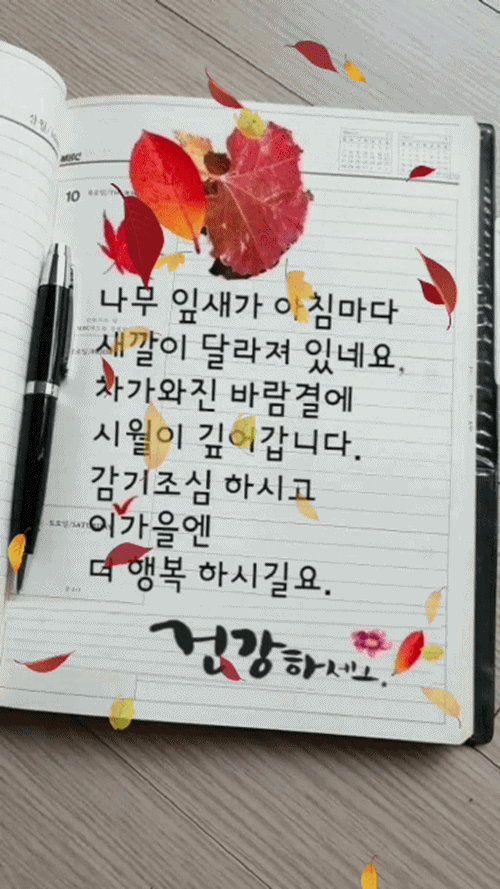 MBC
10
나무 잎새가 아침마다
새깔이 달라져 있네요,
차가와진 바람결에
시월이 깊어갑니다.
감기조심 하시고
이가을엔
더 행복 하시길요.
건강하세요.